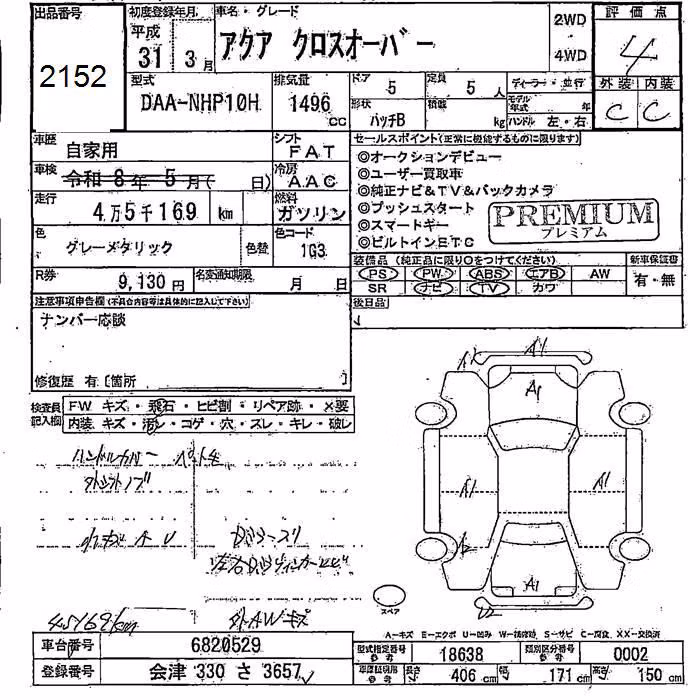 出品番号 2152
初度登録年月 平成 31年 3月
車名・グレード アクア クロスオーバー
2WD
4WD
評価点 4
外装 内装
C C
型式 DAA-NHP10H
排気量 1496 CC
ドア 5
定員 5人
ディーラー・並行
形状 ハッチB
積載 kg
モデル年式 年
ハンドル 左・右
車歴 自家用
シフト FAT
車検 令和 8年 5月( 日)
冷房 AAC
走行 4万5千169 km
燃料 ガソリン
色 グレーメタリック
色替
色コード 1G3
R券 9,130円
名変通知期限 月 日
セールスポイント(正常に機能するものに限ります)
◎オークションデビュー
◎ユーザー買取車
◎純正ナビ&TV&バックカメラ
◎プッシュスタート
◎スマートキー
◎ビルトインETC
PREMIUM
プレミアム
装備品(純正品に限り○をつけてください)
新車保証書
PS PW ABS エアB AW
有・無
SR ナビ TV カワ
後日品
注意事項申告欄(不具合内容等は具体的に記入して下さい)
ナンバー応談
修復歴 有〔箇所 〕
検査員記入欄
FW キズ・飛石・ヒビ割・リペア跡・X要
内装 キズ・汚レ・コゲ・穴・スレ・キレ・破レ
ハンドルカバー
45169km
外AWキズ
A1
A1
A1
A1
A1
U2
スペア
A-キズ E-エクボ U-凹み W-補修跡 S-サビ C-腐食 XX-交換済
車台番号 6820529
登録番号 会津 330 さ 3657
型式指定番号 参考 18638
類別区分番号 参考 0002
車庫証明用 参考
長さ 406 cm
幅 171 cm
高さ 150 cm